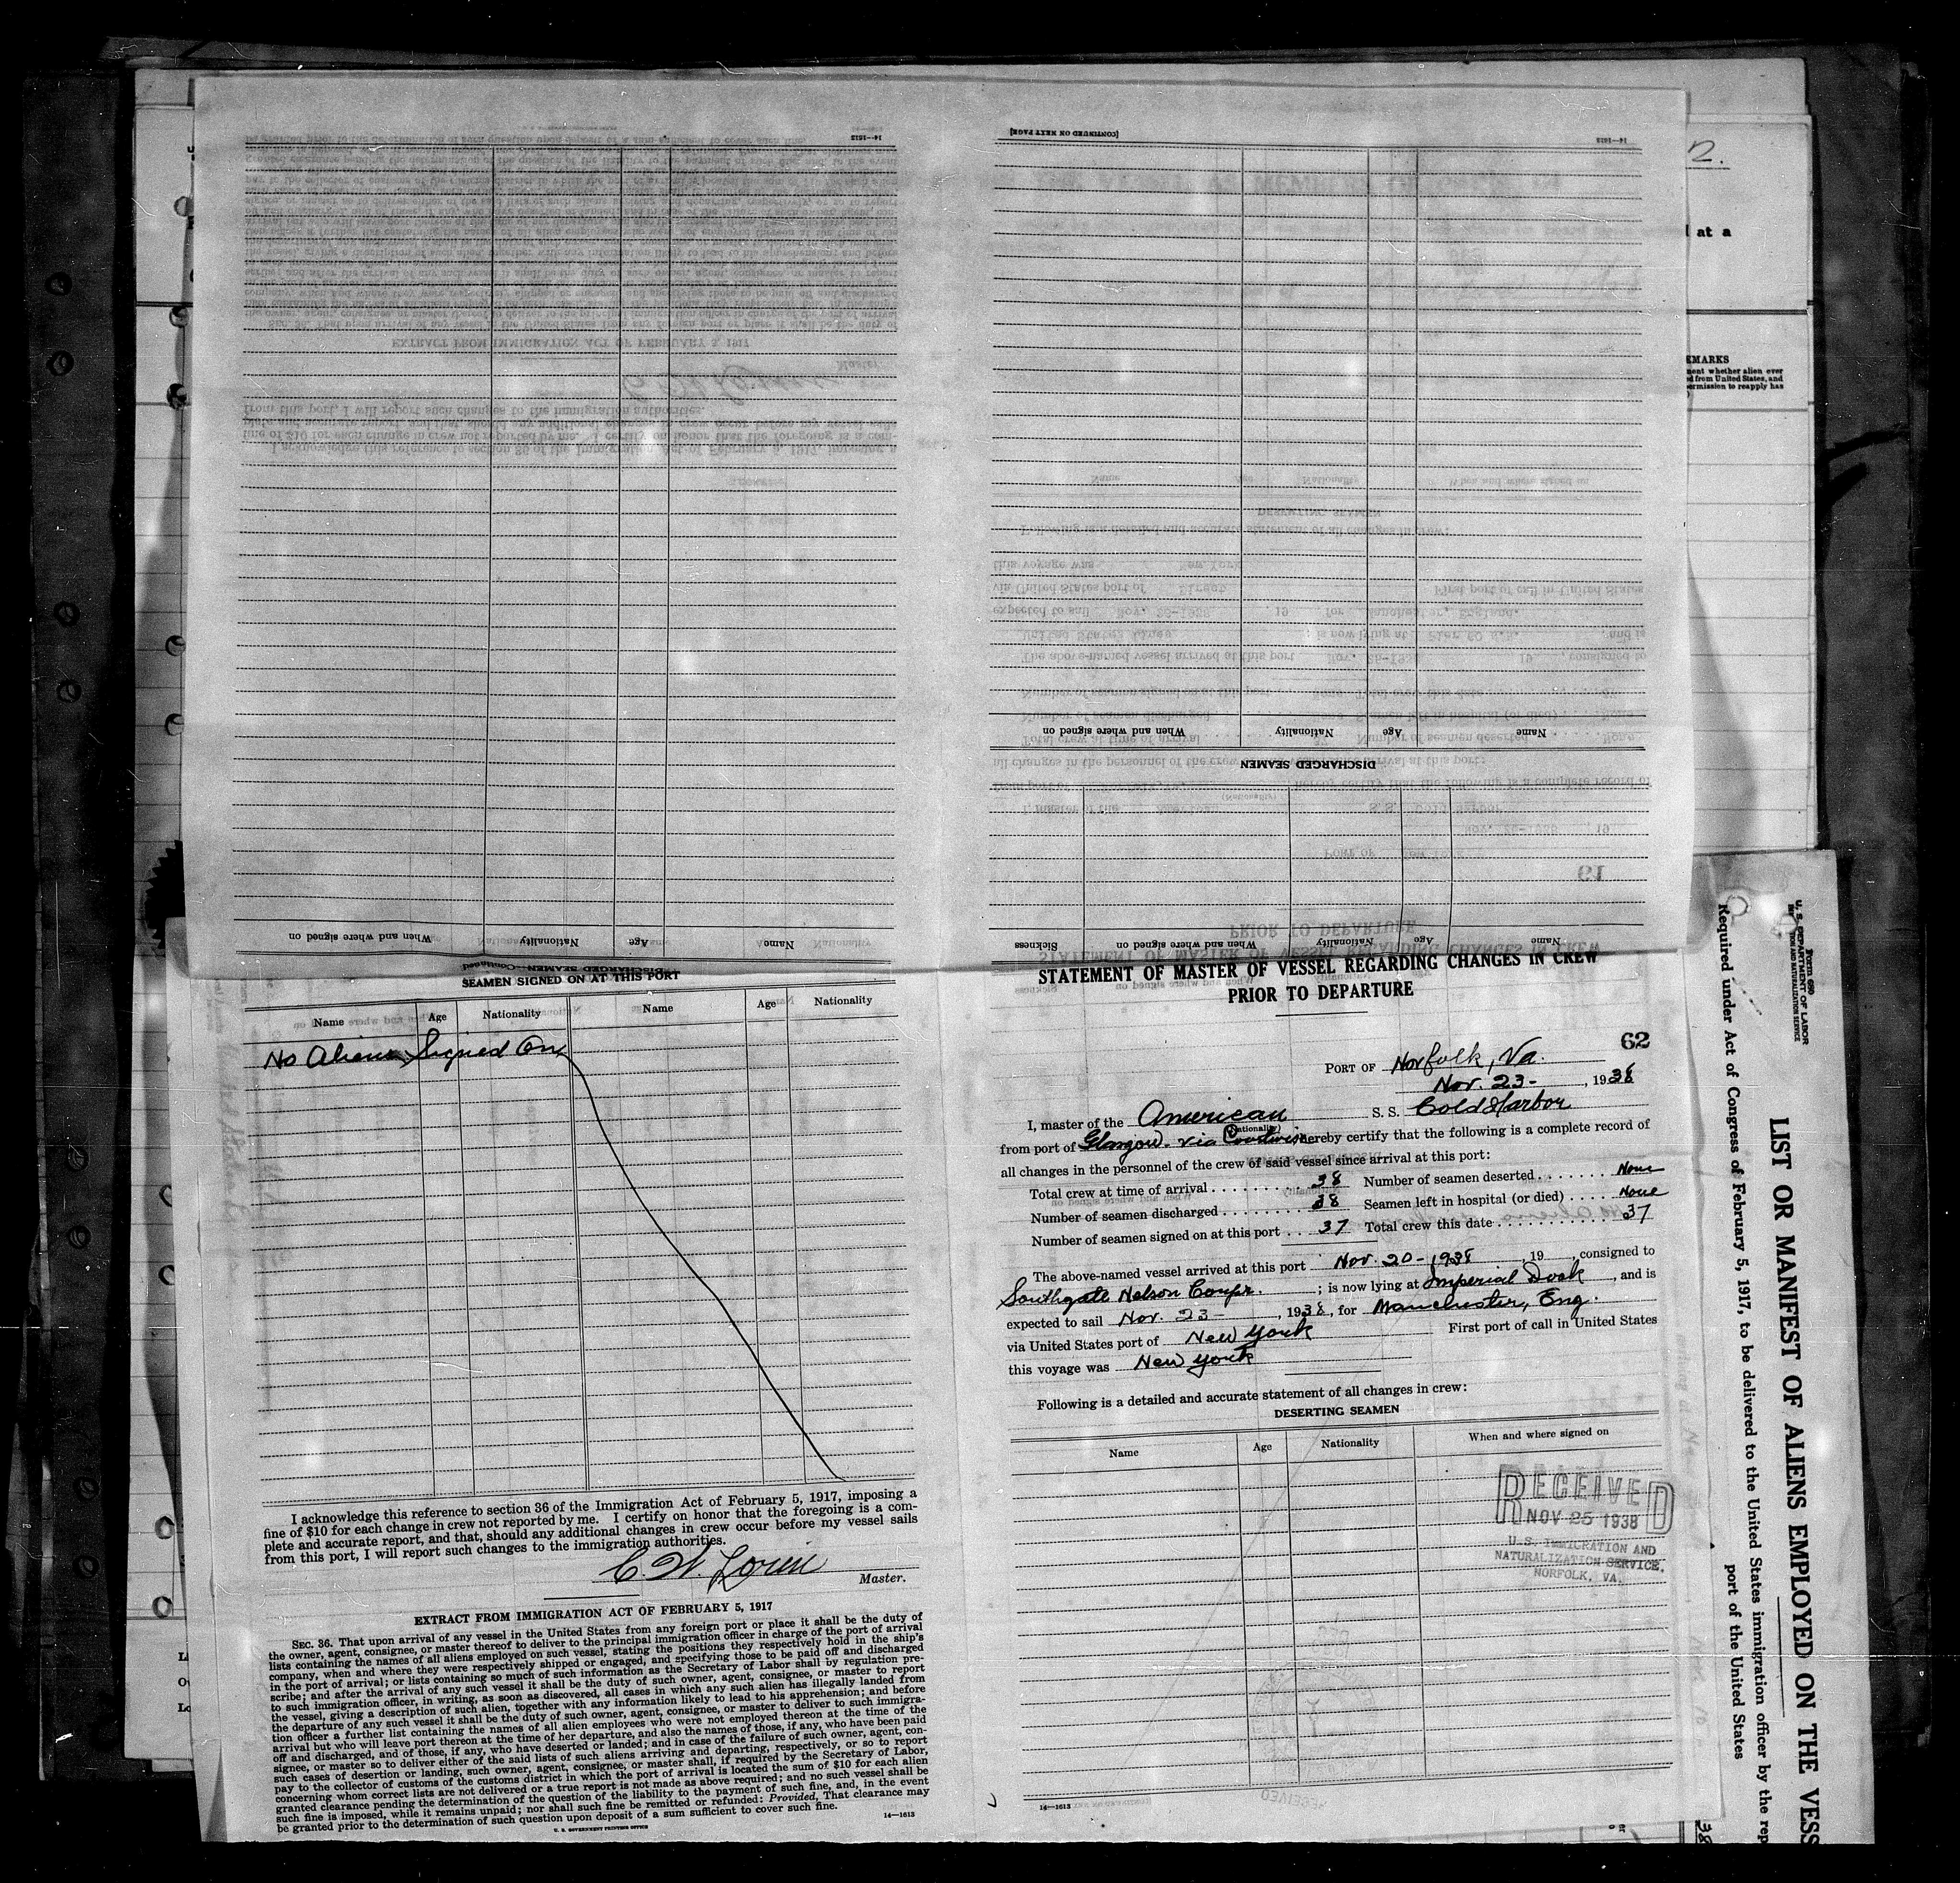 14—1613
[CONTINUED ON NEXT PAGE]
14—1613
When and where signed on
Nationality
Age
Name
DISCHARGED SEAMEN
When and where signed on
Nationality
Age
Name
DISCHARGED SEAMEN—Continued
Sickness
When and where signed on
Nationality
Age
Name
2.
at a
EMARKS
ment whether alien ever
ed from United States, and
permission to reapply has
SEAMEN SIGNED ON AT THIS PORT
Name Age Nationality Name Age Nationality
No Aliens Signed On
I acknowledge this reference to section 36 of the Immigration Act of February 5, 1917, imposing a
fine of $10 for each change in crew not reported by me. I certify on honor that the foregoing is a com-
plete and accurate report, and that, should any additional changes in crew occur before my vessel sails
from this port, I will report such changes to the immigration authorities.
Master.
EXTRACT FROM IMMIGRATION ACT OF FEBRUARY 5, 1917
SEC. 36. That upon arrival of any vessel in the United States from any foreign port or place it shall be the duty of
the owner, agent, consignee, or master thereof to deliver to the principal immigration officer in charge of the port of arrival
lists containing the names of all aliens employed on such vessel, stating the positions they respectively hold in the ship's
company, when and where they were respectively shipped or engaged, and specifying those to be paid off and discharged
in the port of arrival; or lists containing so much of such information as the Secretary of Labor shall by regulation pre-
scribe; and after the arrival of any such vessel it shall be the duty of such owner, agent, consignee, or master to report
to such immigration officer, in writing, as soon as discovered, all cases in which any such alien has illegally landed from
the vessel, giving a description of such alien, together with any information likely to lead to his apprehension; and before
the departure of any such vessel it shall be the duty of such owner, agent, consignee, or master to deliver to such immigra-
tion officer a further list containing the names of all alien employees who were not employed thereon at the time of the
arrival but who will leave port thereon at the time of her departure, and also the names of those, if any, who have been paid
off and discharged, and of those, if any, who have deserted or landed; and in case of the failure of such owner, agent, con-
signee, or master so to deliver either of the said lists of such aliens arriving and departing, respectively, or so to report
such cases of desertion or landing, such owner, agent, consignee, or master shall, if required by the Secretary of Labor,
pay to the collector of customs of the customs district in which the port of arrival is located the sum of $10 for each alien
concerning whom correct lists are not delivered or a true report is not made as above required; and no such vessel shall be
granted clearance pending the determination of the question of the liability to the payment of such fine, and, in the event
such fine is imposed, while it remains unpaid; nor shall such fine be remitted or refunded: Provided, That clearance may
be granted prior to the determination of such question upon deposit of a sum sufficient to cover such fine.
U. S. GOVERNMENT PRINTING OFFICE
14—1613
STATEMENT OF MASTER OF VESSEL REGARDING CHANGES IN CREW
PRIOR TO DEPARTURE
62
PORT OF Norfolk, Va.
Nov. 23-, 1938
I, master of the American S. S. Cold Harbor
(Nationality)
from port of Glasgow. via Coastwise hereby certify that the following is a complete record of
all changes in the personnel of the crew of said vessel since arrival at this port:
Total crew at time of arrival 38 Number of seamen deserted None
Number of seamen discharged 38 Seamen left in hospital (or died) None
Number of seamen signed on at this port 37 Total crew this date 37
The above-named vessel arrived at this port Nov. 20-1938, 19, consigned to
Southgate Nelson Corpr.; is now lying at Imperial Dock, and is
expected to sail Nov. 23, 1938, for Manchester, Eng.
via United States port of New York First port of call in United States
this voyage was New York
Following is a detailed and accurate statement of all changes in crew:
DESERTING SEAMEN
Name Age Nationality When and where signed on
RECEIVED
NOV 25 1938
U.S. IMMIGRATION AND
NATURALIZATION SERVICE.
NORFOLK, VA.
14—1613
Form 680
U. S. DEPARTMENT OF LABOR
LIST OR MANIFEST OF ALIENS EMPLOYED ON THE VESS
Required under Act of Congress of February 5, 1917, to be delivered to the United States immigration officer by the rep
port of the United States
38